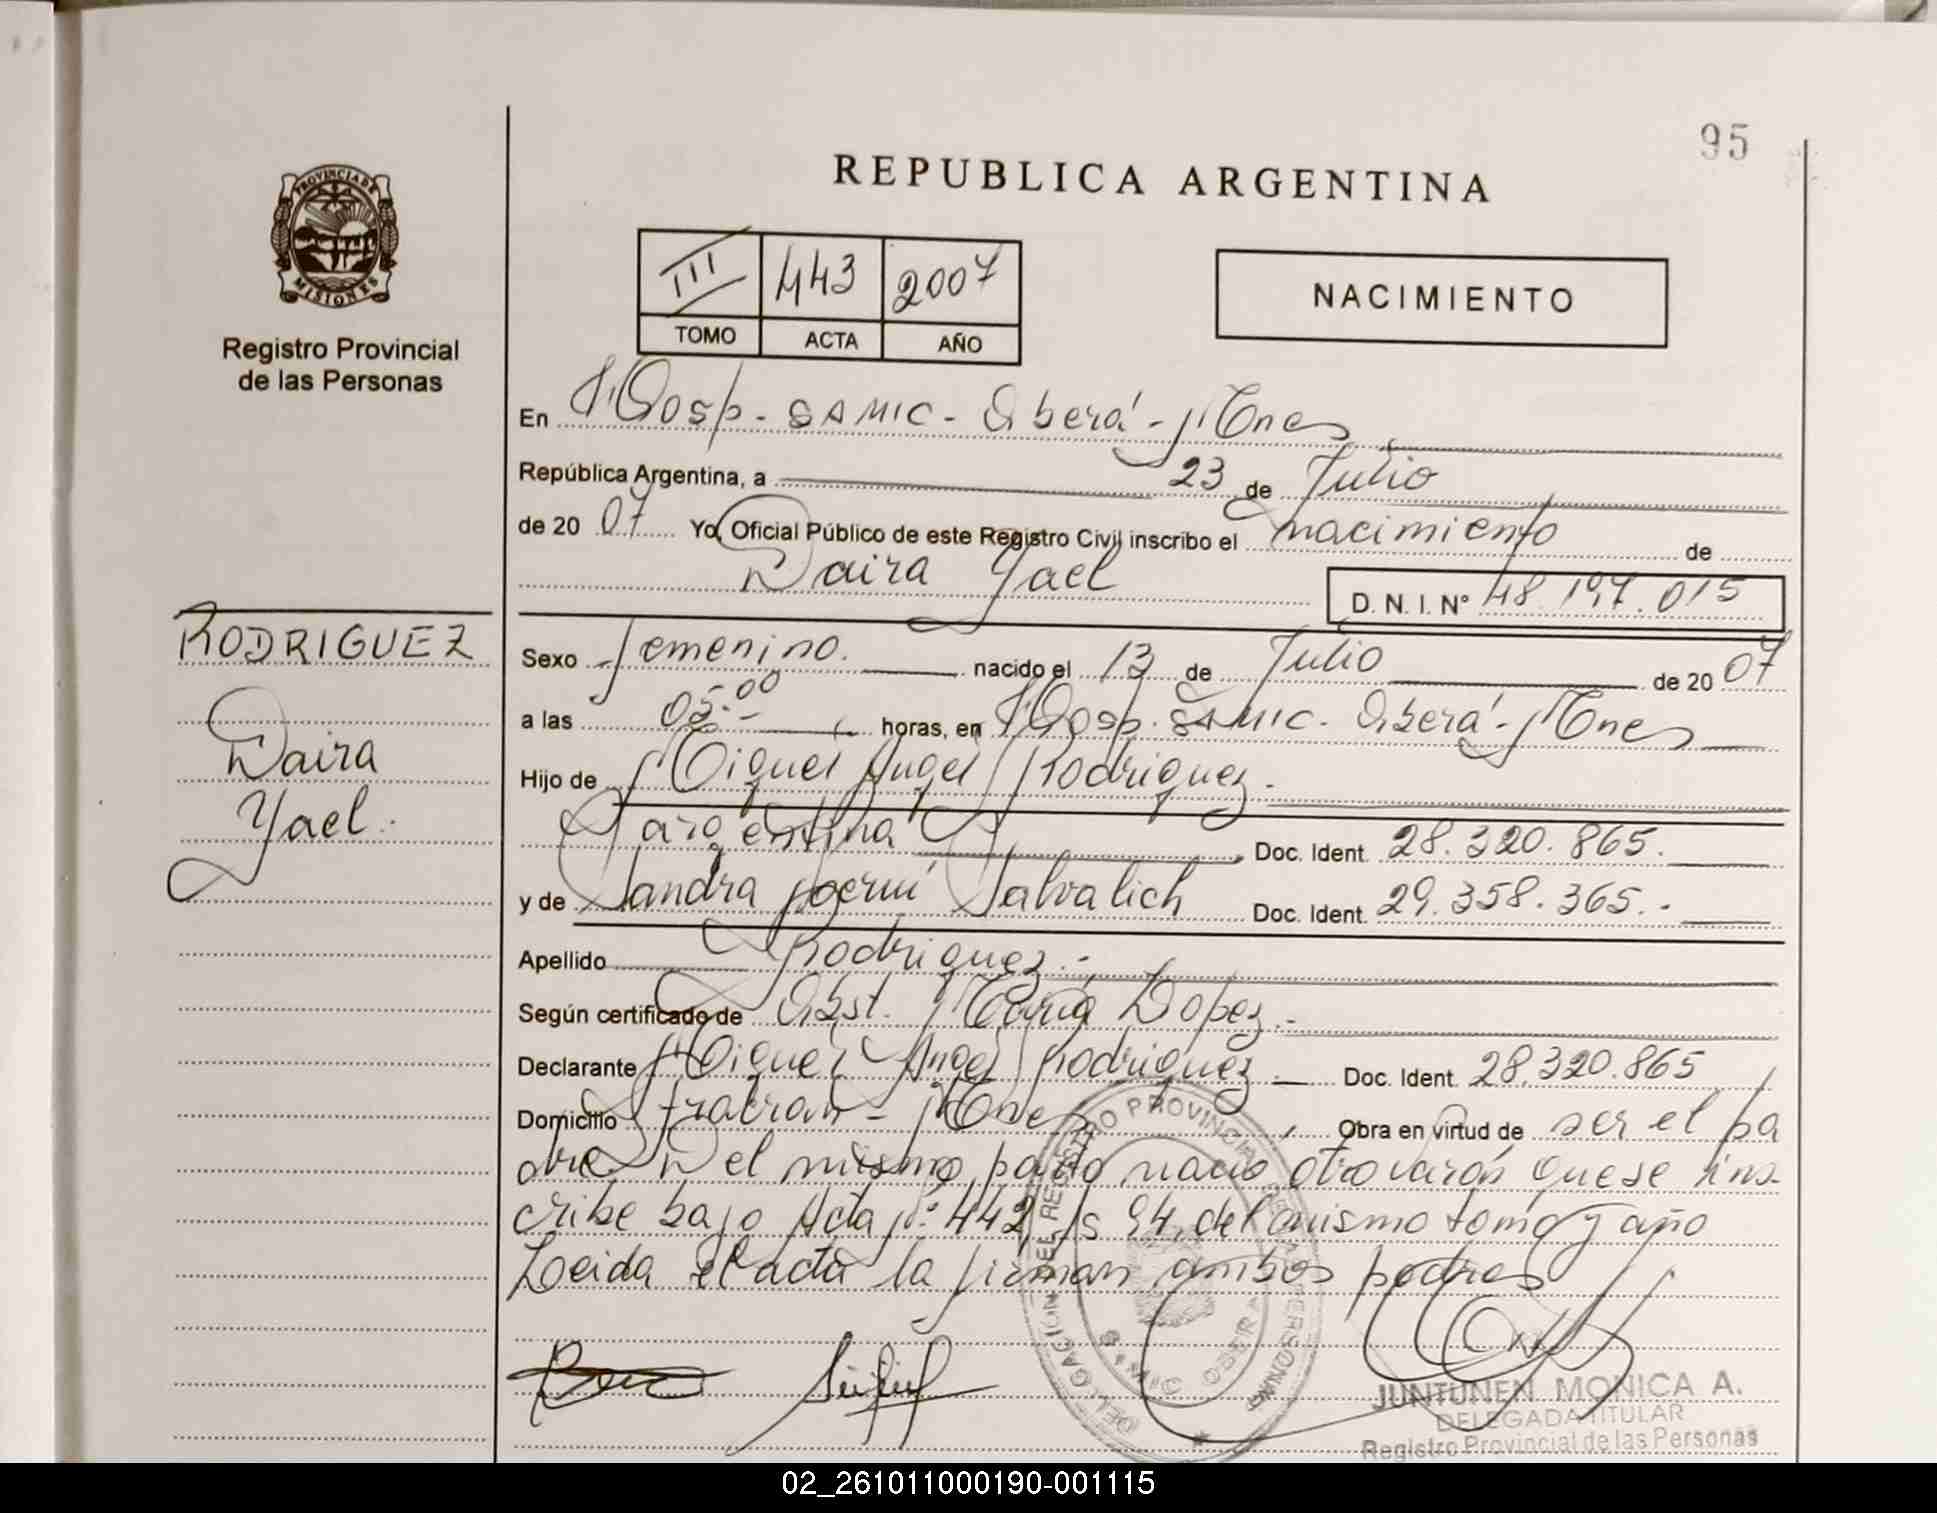 95
REPUBLICA ARGENTINA
PROVINCIA DE
MISIONES
Registro Provincial
de las Personas
III 443 2007
TOMO ACTA AÑO
NACIMIENTO
En Hosp. SAMIC - Oberá - Mnes
República Argentina, a 23 de Julio
de 20 07 Yo, Oficial Público de este Registro Civil inscribo el nacimiento de
Daira Yael
D. N. I. Nº 48.197.015
RODRIGUEZ
Daira
Yael.-
Sexo femenino. nacido el 13 de Julio de 20 07
a las 05:00 horas, en Hosp. SAMIC. Oberá - Mnes
Hijo de Miguel Angel Rodriguez.
argentina Doc. Ident. 28.320.865.
y de Sandra Noemí Salvalich Doc. Ident. 29.358.365.-
Apellido Rodriguez.-
Según certificado de Obst. María Lopez.-
Declarante Miguel Angel Rodriguez Doc. Ident. 28.320.865
Domicilio Fracran - Mnes, Obra en virtud de ser el pa
dre. En el mismo parto nacio otro varón que se ins-
cribe bajo Acta Nº 442 Fs 94, del mismo tomo y año
Leida el acta la firman ambos padres
DELEGACION DEL REGISTRO PROVINCIAL DE LAS PERSONAS
OBERA
JUNTUNEN MONICA A.
DELEGADA TITULAR
Registro Provincial de las Personas
02_261011000190-001115